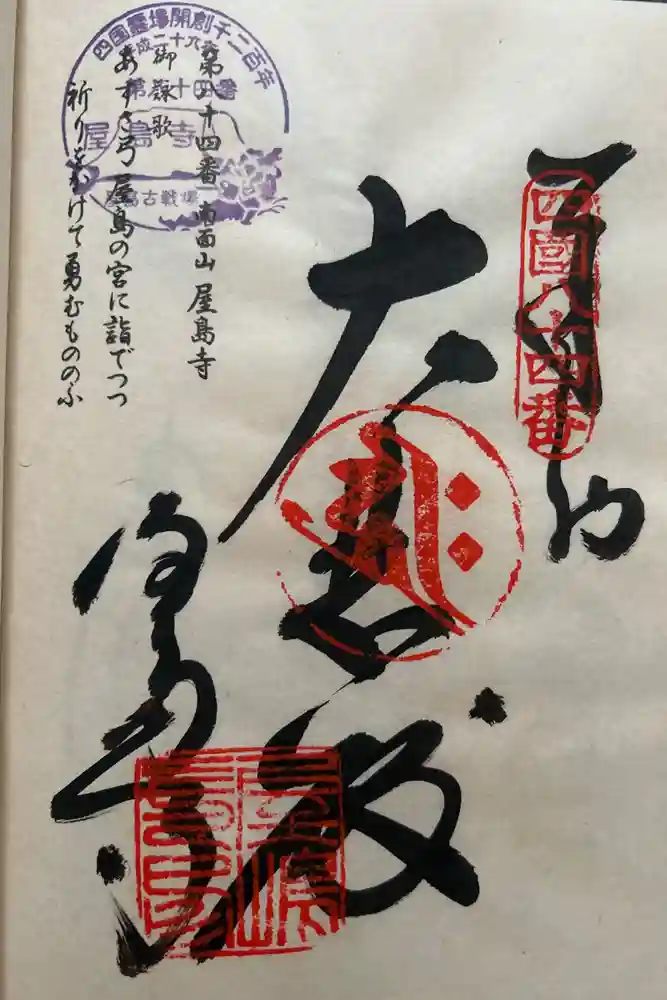 四国八十四番
奉納
大悲殿
屋島寺
四国霊場開創千二百年
第八十四番
屋島寺
屋島古戦場
第八十四番 南面山 屋島寺
御詠歌
あずさ弓 屋島の宮に詣でつつ
祈りをかけて勇むもののふ